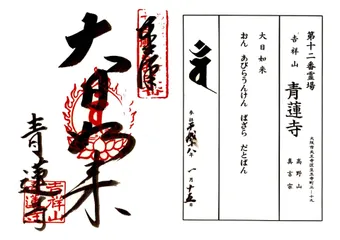 第十二番霊場
吉祥山 青蓮寺
高野山
真言宗
大日如来
おん あびらうんけん ばざら だとばん
平成十八年 一月十五日
大日如来
青蓮寺
吉祥山
青蓮寺